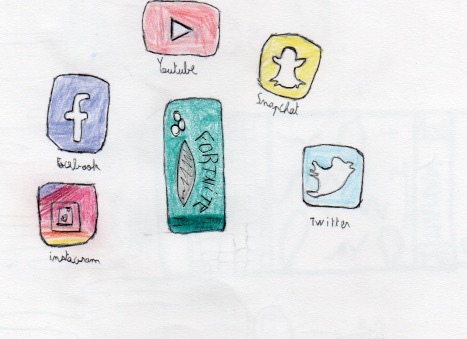 Youtube
Snapchat
f
Facebook
FORTNITE
Twitter
instagram